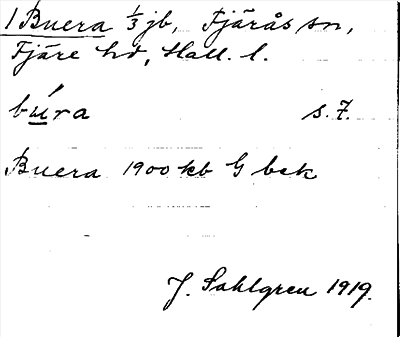 1 Buera ⅓ jb, Fjärås sn,
Fjäre hd, Hall. l.
búra s. 7.
Buera 1900 kb G bek
J. Sahlgren 1919.